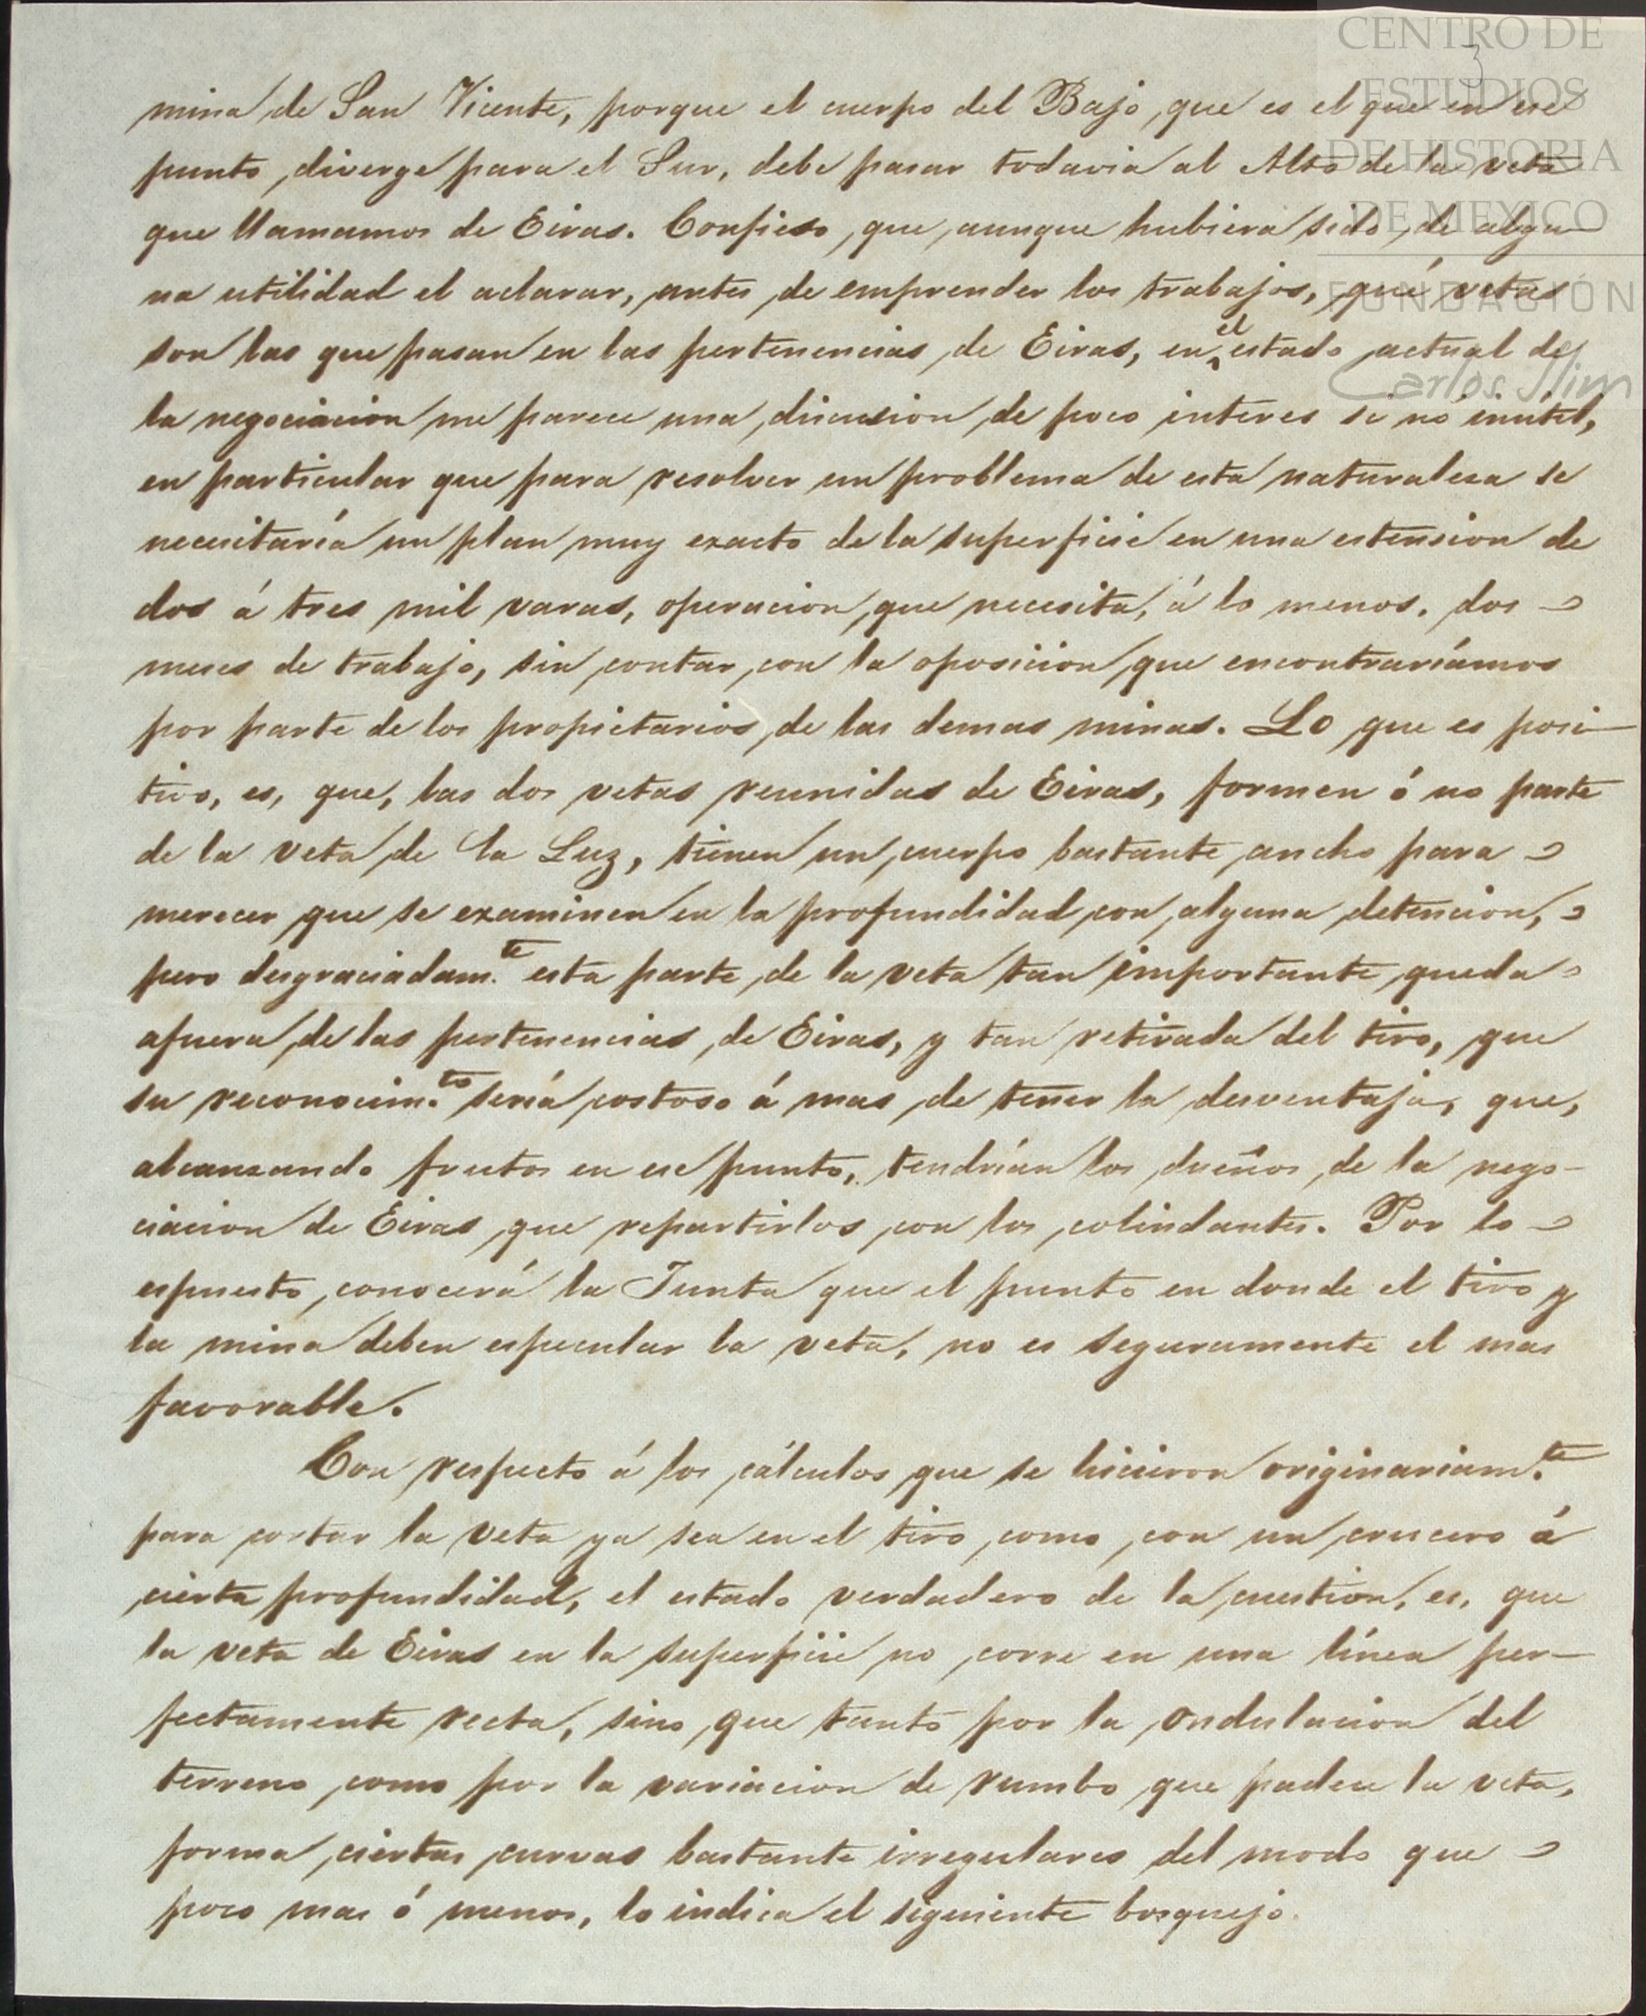 CENTRO DE
ESTUDIOS
DE HISTORIA
DE MEXICO
FUNDACIÓN
Carlos Slim
3
mina de San Vicente, porque el cuerpo del Bajo, que es el que en ese
punto, diverge para el Sur, debe pasar todavia al Alto de la veta
que llamamos de Eiras. Confieso, que, aunque hubiera sido, de algu-
na utilidad el aclarar, antes, de emprender los trabajos, qué vetas
son las que pasan en las pertenencias, de Eiras, en el estado actual de
la negociacion me parece una discusion, de poco interes si no inútil,
en particular que para resolver un problema de esta naturalesa se
necesitaría un plan muy exacto de la superficie en una estension de
dos á tres mil varas, operacion, que necesita, á lo menos, dos
meses de trabajo, sin contar, con la oposicion que encontraríamos
por parte de los propietarios, de las demas minas. Lo que es posi-
tivo, es, que, las dos vetas reunidas de Eiras, formen ó no parte
de la veta, de la Luz, tienen un cuerpo bastante ancho para
merecer que se examinen en la profundidad, con, alguna detencion,
pero desgraciadam.te esta parte, de la veta tan importante, queda
afuera, de las pertenencias, de Eiras, y tan retirada del tiro, que
su reconocim.to sería costoso á mas, de tener la desventaja, que,
alcansando frutos en ese punto, tendrían los dueños, de la nego-
ciacion de Eiras, que repartirlos, con los colindantes. Por lo
espuesto, conocerá la Junta que el punto en donde el tiro y
la mina deben especular la veta, no es seguramente el mas
favorable.
Con respecto á los cálculos que se hicieron originariam.te
para cortar la veta ya sea en el tiro, como, con un crucero á
cierta profundidad, el estado verdadero de la cuestion, es, que
la veta de Eiras en la superficie no, corre en una línea per-
fectamente recta, sino, que tanto por la ondulacion del
terreno, como por la variacion de rumbo que padece la veta,
forma, ciertas curvas bastante irregulares del modo que
poco mas ó menos, lo indica el siguiente bosquejo.